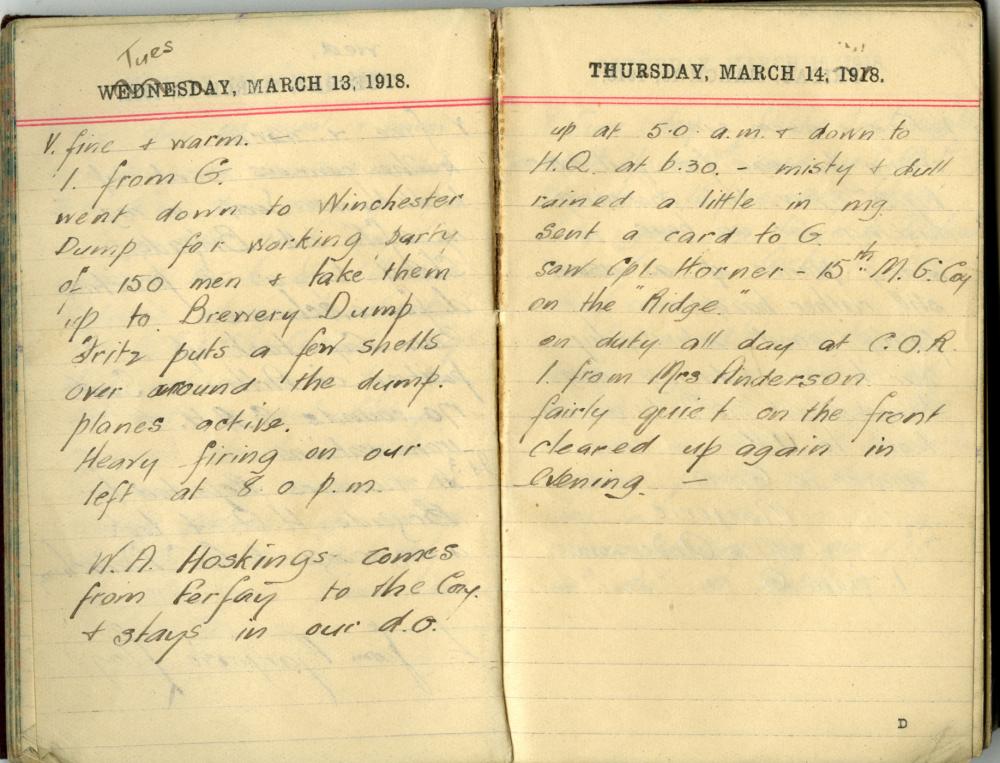 Tues
WEDNESDAY, MARCH 13, 1918.
V. fine + warm.
1. from G.
went down to Winchester
Dump for working party
of 150 men + take them
up to Brewery Dump
Fritz puts a few shells
over around the dump.
planes active.
Heavy firing on our
left at 8 0 p.m.
W.A. Hoskings comes
from Ferfay to the Coy.
+ stays in our d.o.
THURSDAY, MARCH 14, 1918.
up at 5.0. a.m. + down to
H.Q. at 6.30. - misty + dull
rained a little in mg.
sent a card to G.
saw Cpl. Horner - 15th M.G. Coy
on the "Ridge"
on duty all day at C.O.R.
1. from Mrs Anderson
fairly quiet on the front
cleared up again in
evening. -
D